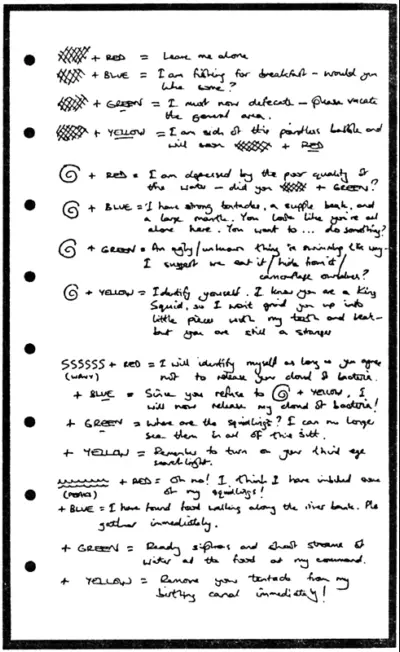 + RED = Leave me alone
+ BLUE = I am fishing for breakfast - would you
like some?
+ GREEN = I must now defecate - please vacate
the general area.
+ YELLOW = I am sick of this pointless babble and
will soon + RED
+ RED = I am depressed by the poor quality of
the water - did you + GREEN?
+ BLUE = I have strong tentacles, a supple beak, and
a large mantle. You look like you're all
alone here. You want to ... do something?
+ GREEN = An ugly/unknown thing is swimming this way.
I suggest we eat it/hide from it/
camouflage ourselves?
+ YELLOW = Identify yourself. I know you are a King
Squid, so I won't grind you up into
little pieces with my teeth and beak-
but you are still a stranger
SSSSSS + RED = I will identify myself as long as you agree
(WAVY) not to release your cloud of bacteria.
+ BLUE = Since you refuse to + YELLOW, I
will now release my cloud of bacteria!
+ GREEN = Where are the squidlings? I can no longer
see them in all of this silt.
+ YELLOW = Remember to turn on your third eye
searchlight.
+ RED = Oh no! I think I have inhaled some
of my squidlings!
+ BLUE = I have found food walking along the river bank. Pls
gather immediately.
+ GREEN = Ready siphons and shoot streams of
water at the food at my command.
+ YELLOW = Remove your tentacle from my
birthing canal immediately!